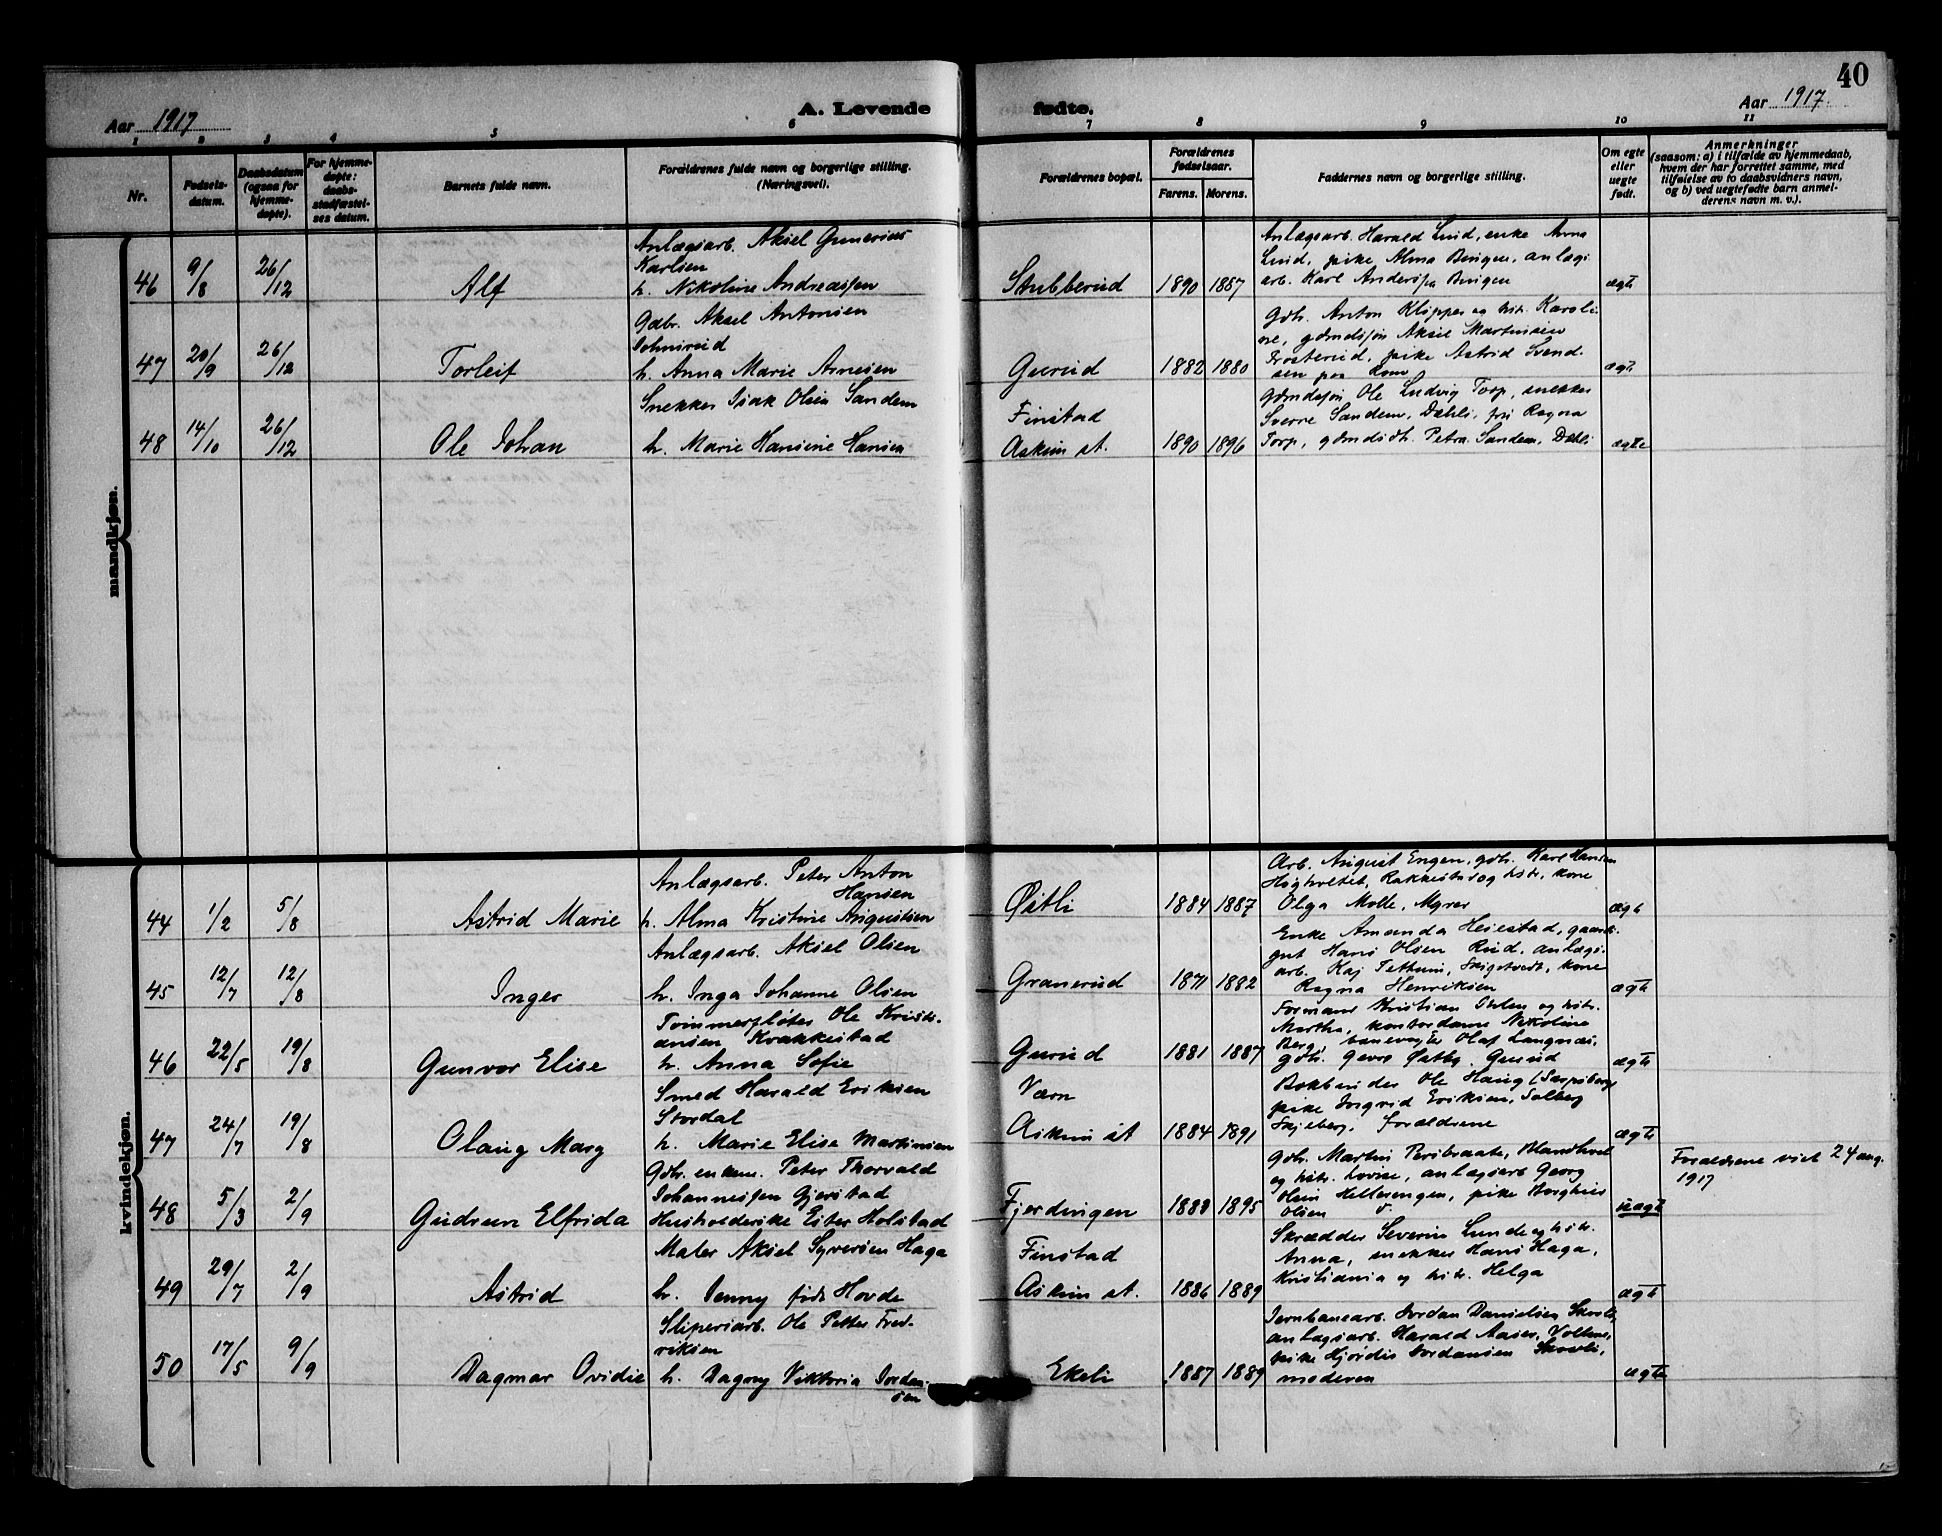 40
Aar 1917
A. Levende
fødte.
Aar 1917.
1 2 3 4 5 6 7 8 9 10 11
Nr.
Fødsels-
datum.
Daabsdatum
(ogsaa for
hjemme-
døpte).
For hjemme-
døpte:
daabs-
stadfæstel-
ses datum.
Barnets fulde navn.
Forældrenes fulde navn og borgerlige stilling.
(Næringsvei).
Forældrenes bopæl.
Forældrenes
fødselsaar.
Farens. Morens.
Faddernes navn og borgerlige stilling.
Om egte
eller
uegte
født.
Anmerkninger
(saasom: a) i tilfælde av hjemmedaab,
hvem der har forrettet samme, med
tilføielse av to daabsvidners navn,
og b) ved uegtefødte barn anmel-
derens navn m. v.).
mandkjøn.
46 9/8 26/12 Alf
Anlægsarb. Aksel Gunerius
Karlsen
h. Nikoline Andreassen
Stubberud 1890 1887
Anlægsarb. Harald Lund, enke Anna
Lund, pike Alma Bingen, anlægs
arb. Karl Anderss. Bingen
ægte
47 20/9 26/12 Torleif
Gdbr. Aksel Antonsen
Johnsrud
h. Anna Marie Arnesen
Gurud 1882 1880
Gdbr. Anton Klippen og hstr. Karoli-
ne, gdmdssøn Aksel Martinsen
Frosterud, pike Astrid Svend-
sen paa Rom
ægte
48 14/10 26/12 Ole Johan
Snekker Isak Olsen Sandem
h. Marie Hansine Hansen
Finstad
Askim st. 1890 1896
gdmdssøn Ole Ludvig Torp, snekker
Sverre Sandem, Dæhli, frk Ragna
Torp, gdmdsdtr. Petra Sandem, Dæhli
ægte
kvindekjøn.
44 1/2 5/8 Astrid Marie
Anlægsarb. Peter Anton
Hansen
h. Alma Kristine Augustsen
Østli 1884 1887
Arb. August Engen, gdbr. Karl Hansen
Høgholtet, Rakkestad og hstr, kone
Olga Molle, Myrer
ægte
45 12/7 12/8 Inger
Anlægsarb. Aksel Olsen
h. Inga Johanne Olsen
Granerud 1871 1882
Enke Amanda Heiestad, gaards-
gut Hans Olsen Rud, anlægs-
arb. Kaj Tettum, kone
Ragna Henriksen
ægte
46 22/5 19/8 Gunvor Elise
Tømmerfløter Ole Kristi-
ansen Krakkestad
h. Anna Sofie
Gurud 1881 1887
Formann Kristian Ihlen og hstr.
Martha, kontordame Nikoline
Berg, banevogter Olaf Langnæs,
gdbr. Georg Østby, Gurud
ægte
47 24/7 19/8 Olaug Mary
Smed Harald Eriksen
Stordal
h. Marie Elise Martinsen
Værn
Askim st 1884 1891
Bokbinder Ole Haug (Sarpsborg)
pike Ingrid Eriksen, Solberg
Skjeberg, Forældrene
ægte
48 5/3 2/9 Gudrun Elfrida
Gdbr. enkem. Peter Thorvald
Johannessen Gjerstad
Husholderske Ester Holstad
Fjerdingen 1889 1895
Gdbr. Martin Bribraate,
og hstr. Lovise, anlægsarb Georg
Olsen Hellesengen, pike Borghild
Olsen
uægte
Forældrene viet 24 aug.
1917
49 29/7 2/9 Astrid
Maler Aksel Syversen Haga
h. Jenny født Hovde
Finstad
Askim st. 1886 1889
Skrædder Severin Lunde og hstr.
Anna, snekker Hans Haga,
Kristiania og hstr. Helga
ægte
50 17/5 9/9 Dagmar Ovidie
Sliperiarb. Ole Petter Fred-
riksen
h. Dagny Viktoria Jordan-
sen
Ekeli 1887 1889
Jernbanearb. Jordan Danielsen Skovli,
anlægsarb. Harald Aasen, Vollene,
pike Hjørdis Jordansen Skovli,
moderen
ægte